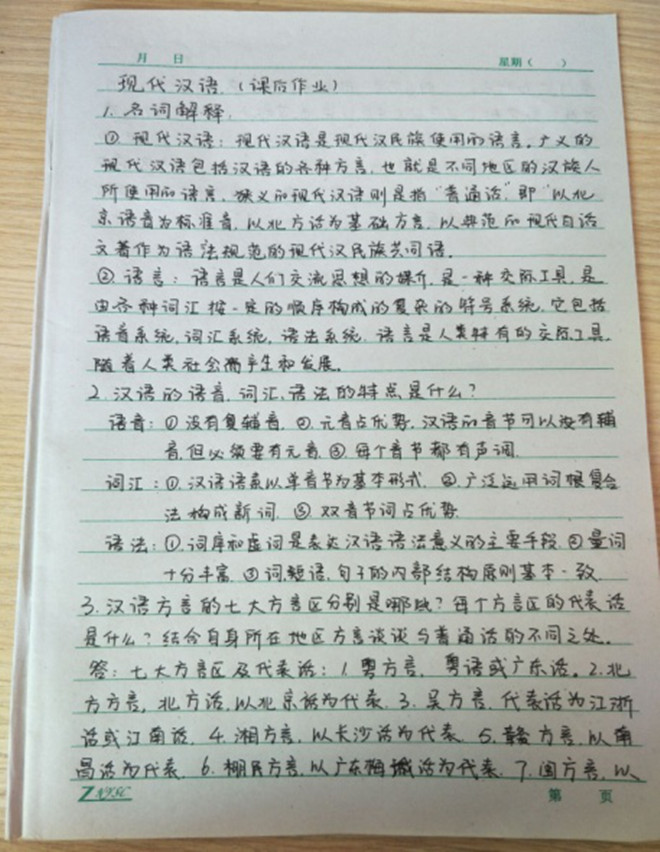 月 日 星期( )
现代汉语(课后作业)
1. 名词解释:
① 现代汉语:现代汉语是现代汉民族使用的语言。广义的
现代汉语包括汉语的各种方言,也就是不同地区的汉族人
所使用的语言,狭义的现代汉语则是指“普通话”,即“以北
京语音为标准音,以北方话为基础方言,以典范的现代白话
文著作为语法规范的现代汉民族共同语。
② 语言:语言是人们交流思想的媒介,是一种交际工具,是
由各种词汇按一定的顺序构成的复杂的符号系统,它包括
语音系统,词汇系统,语法系统,语言是人类特有的交际工具,
随着人类社会而产生和发展。
2. 汉语的语音、词汇、语法的特点是什么?
语音:① 没有复辅音。②. 元音占优势,汉语的音节可以没有辅
音,但必须要有元音 ③ 每个音节都有声调.
词汇:①. 汉语语素以单音节为基本形式. ②. 广泛运用词根复合
法构成新词. ③ 双音节词占优势
语法:①. 词序和虚词是表达汉语语法意义的主要手段 ② 量词
十分丰富. ③ 词短语,句子的内部结构原则基本一致.
3. 汉语方言的七大方言区分别是哪些?每个方言区的代表话
是什么?结合自身所在地区方言谈谈与普通话的不同之处。
答:七大方言区及代表话:1. 粤方言, 粤语或广东话。2. 北
方方言,北方话,以北京话为代表. 3. 吴方言,代表话为江浙
话或江南话. 4. 湘方言,以长沙话为代表. 5. 赣方言,以南
昌话为代表. 6. 棚民方言,以广东梅城话为代表. 7. 闽方言,以
第 页